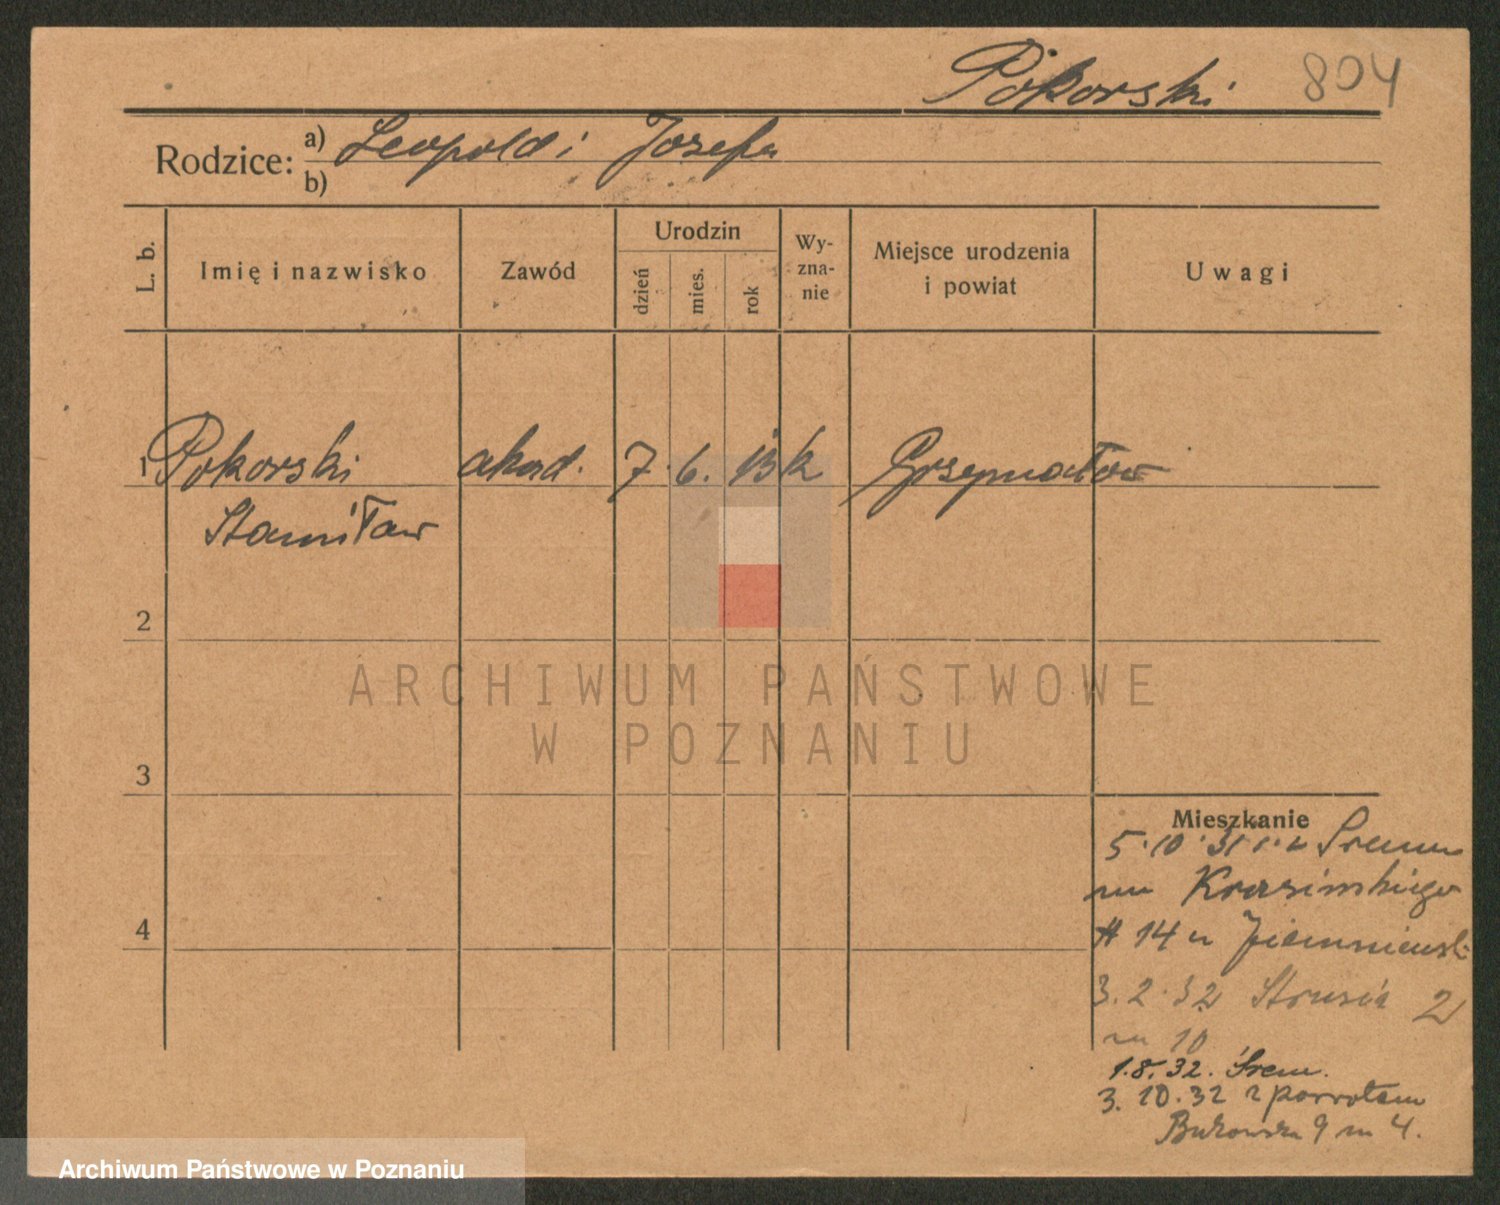 Pokorski 804
Rodzice: a) Leopold i Josefa
b)
L. b.
Imię i nazwisko
Zawód
Urodzin
dzień
mies.
rok
Wy-
zna-
nie
Miejsce urodzenia
i powiat
Uwagi
1 Pokorski akad. 7. 6. 13 k Grzymałów
Stanisław
2
ARCHIWUM PAŃSTWOWE
W POZNANIU
3
Mieszkanie
5.10.31 r. z Śremu
Krasińskiego
14 u
4
3.2.32 Strusia 2
m 10
1.8.32. Śrem.
3.10.32 z powrotem
Bukowska 9 m 4.
Archiwum Państwowe w Poznaniu